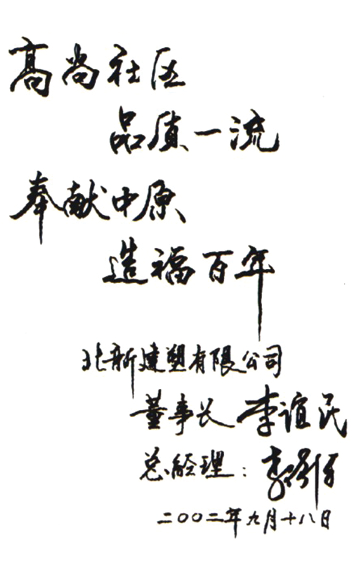 高尚社区
品质一流
奉献中原
造福百年
北新建塑有限公司
董事长 李谊民
总经理:
二〇〇二年九月十八日